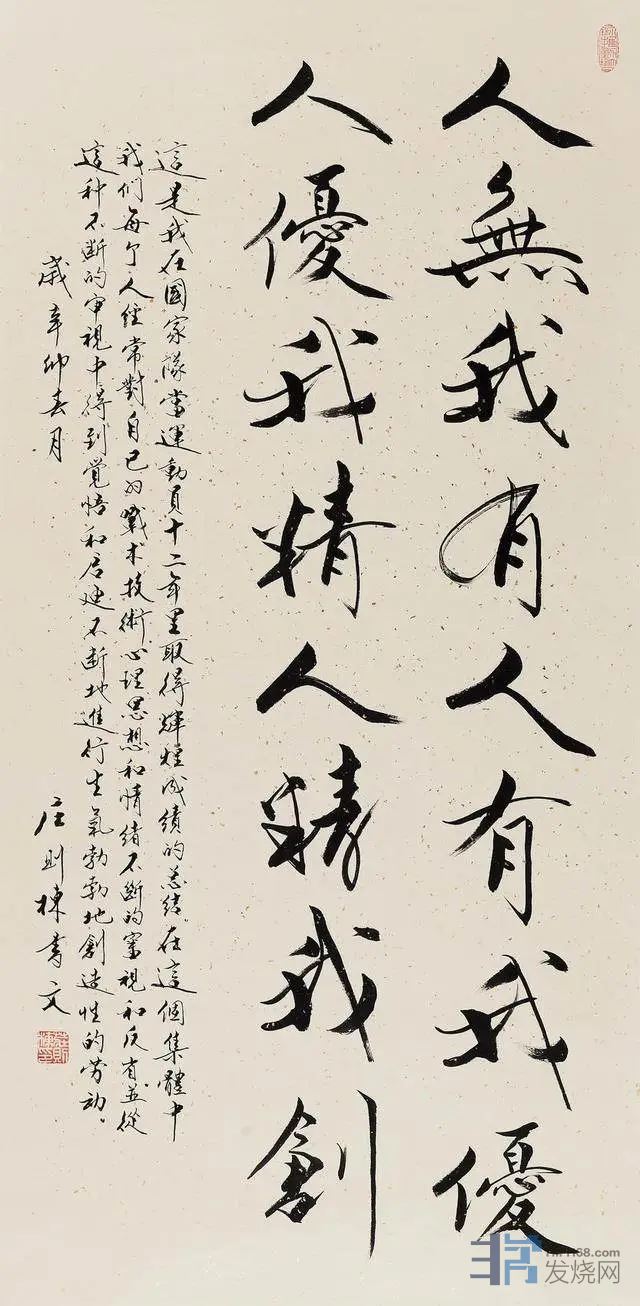 人無我有人有我優
人優我精人精我創
這是我在國家隊當運動員十二年里取得輝煌成績的总结.在這個集體中
我们每个人经常對自己的戰术技術心理思想和情緒不斷的審視和反省並從
這种不断的审视中得到覺悟和启迪不断地進行生氣勃勃地創造性的劳动。
歲辛卯春月
庄则棟書文
发烧网